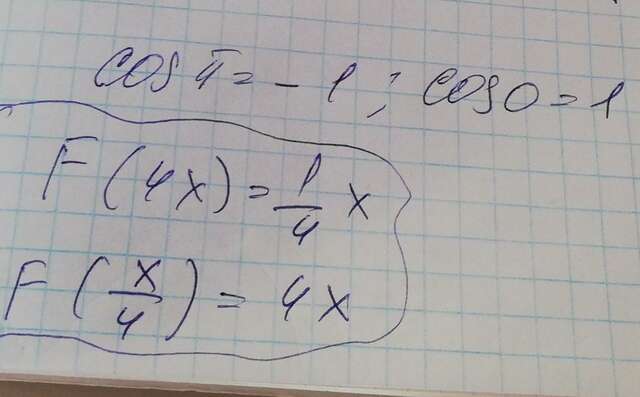 cos π = - 1 ; cos 0 = 1
F (4x) = 1/4 x
F (x/4) = 4x